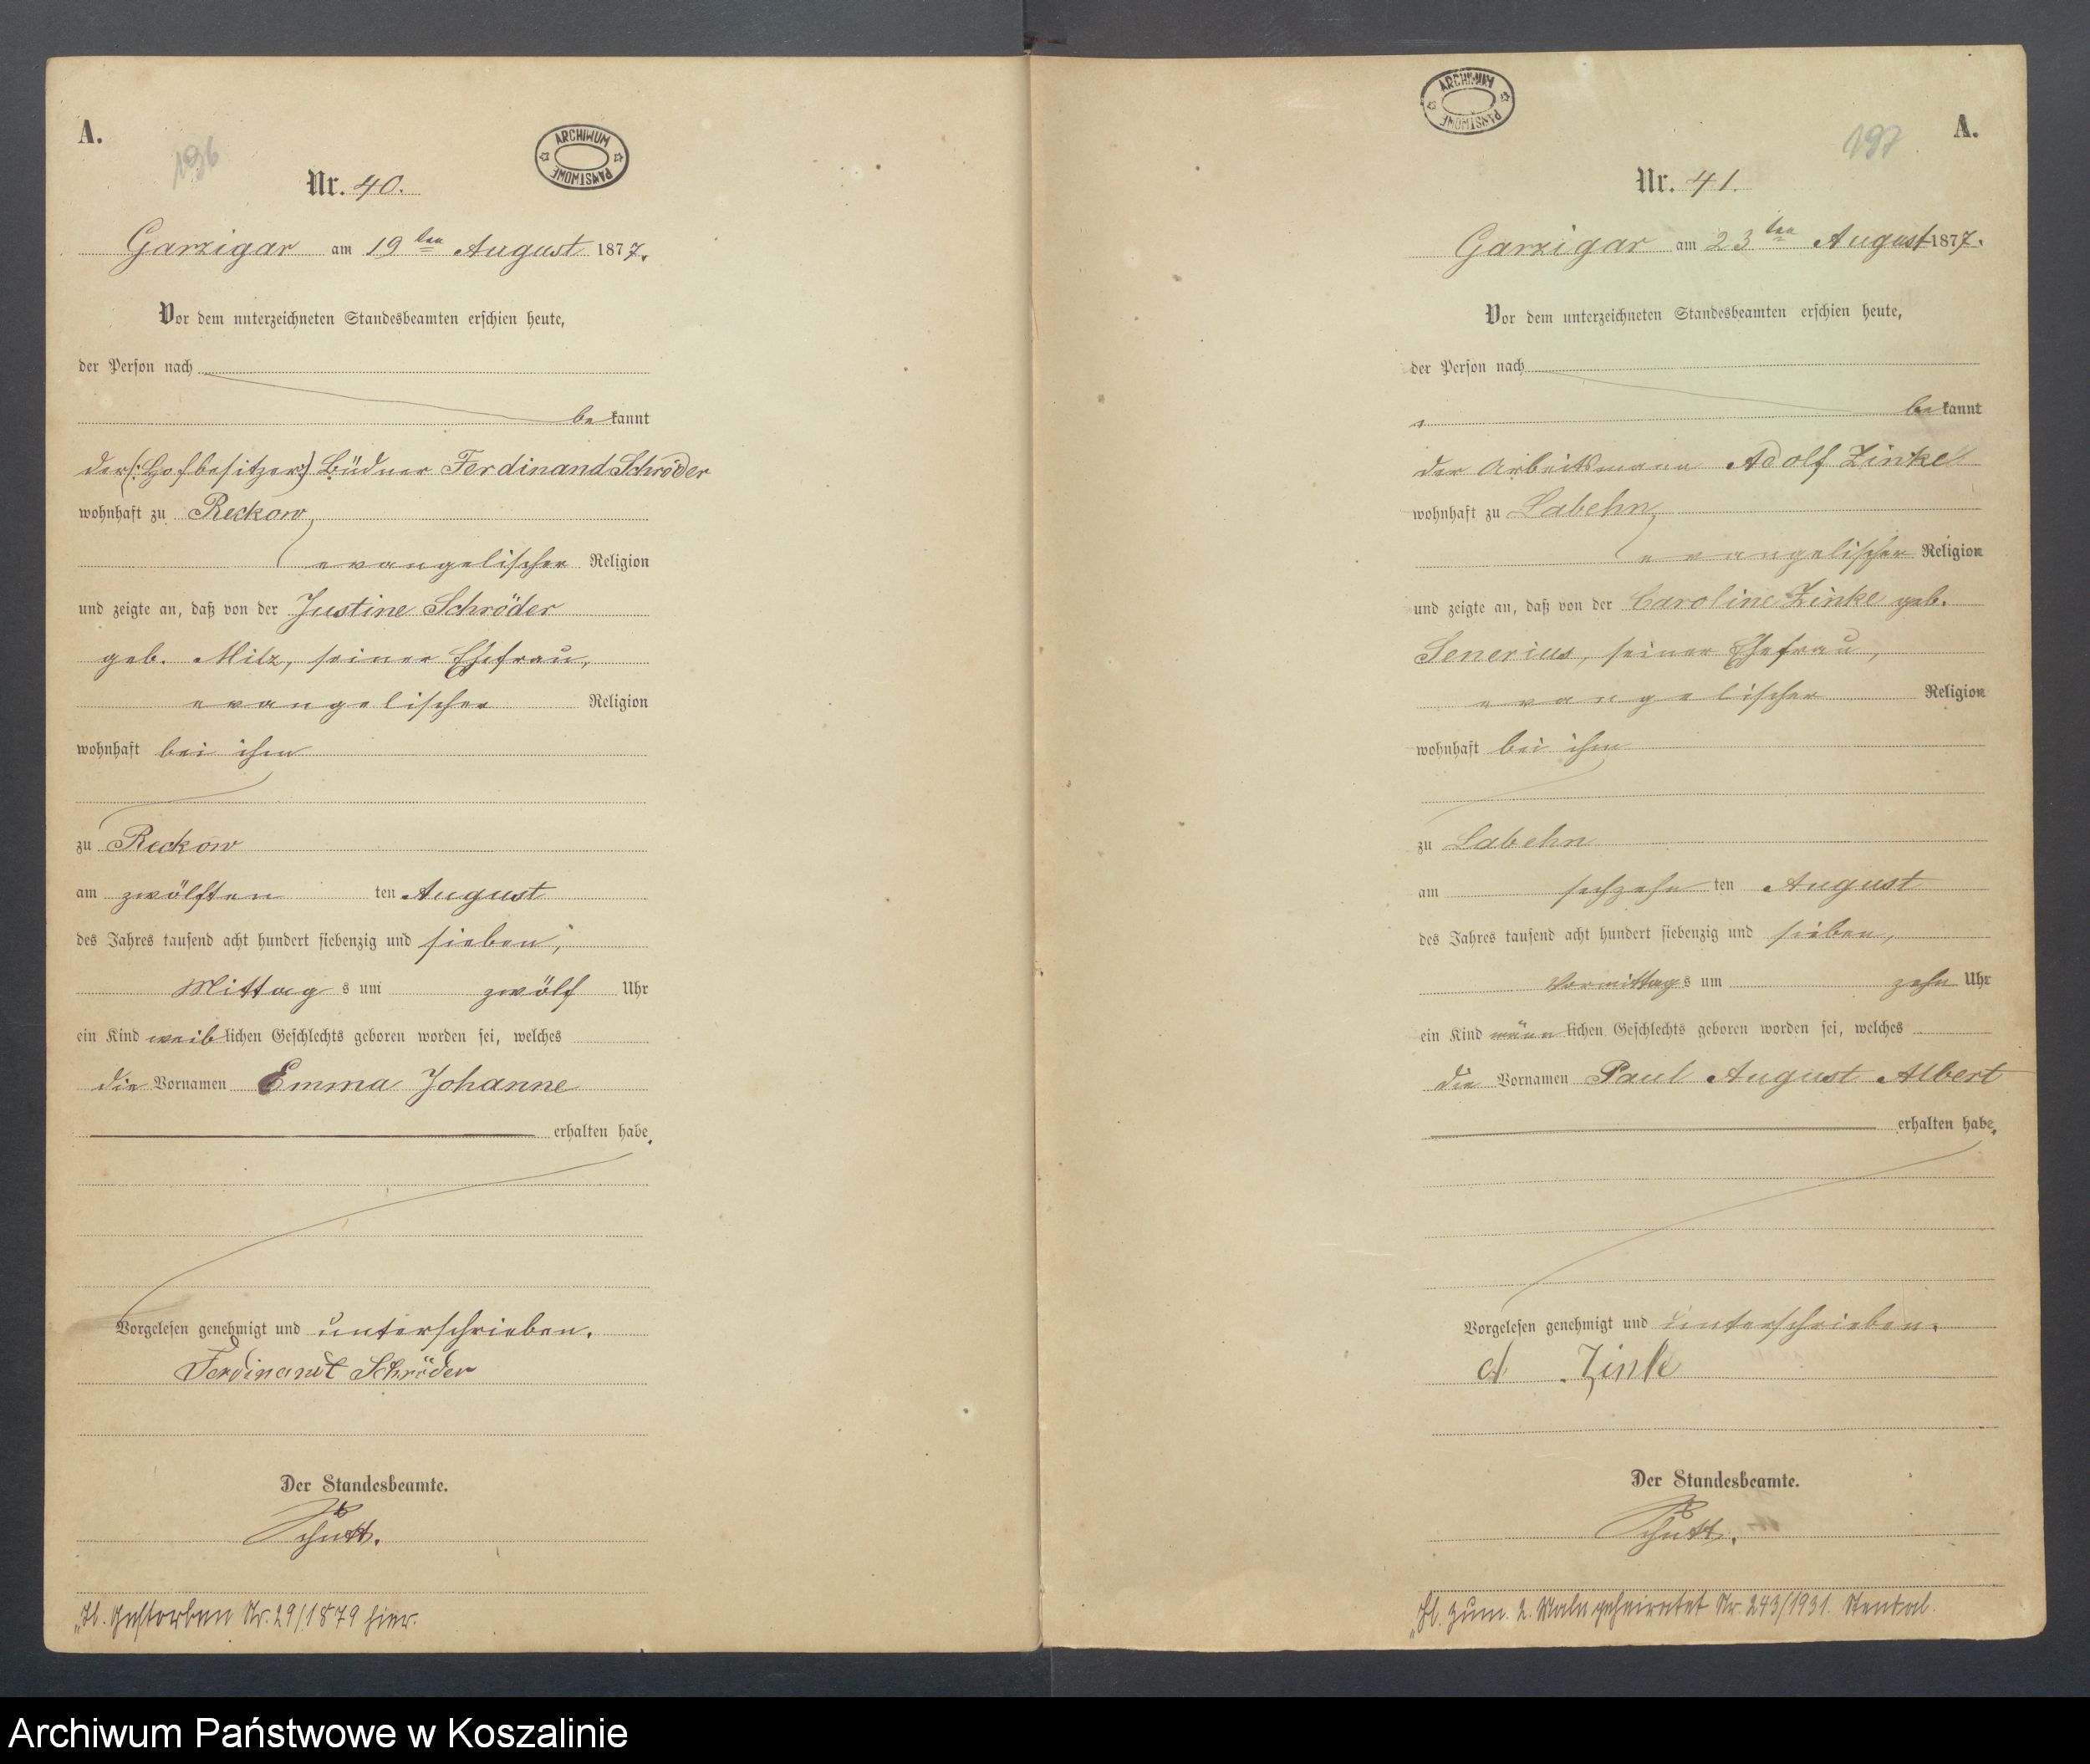 A.
196
ARCHIWUM PAŃSTWOWE
Nr. 40.
Garzigar am 19ten August 1877.
Vor dem unterzeichneten Standesbeamten erschien heute,
der Person nach
be kannt
der (: Hofbesitzer :) Büdner Ferdinand Schröder
wohnhaft zu Reckow,
evangelischer Religion
und zeigte an, daß von der Justine Schröder
geb. Milz, seiner Ehefrau,
evangelischer Religion
wohnhaft bei ihm
zu Reckow
am zwölften ten August
des Jahres tausend acht hundert siebenzig und sieben,
Mittag s um zwölf Uhr
ein Kind weib lichen Geschlechts geboren worden sei, welches
die Vornamen Emma Johanne
erhalten habe.
Vorgelesen genehmigt und unterschrieben.
Ferdinandt Schröder
Der Standesbeamte.
Schutt.
Gestorben Nr. 29/1879 hier.
ARCHIWUM PAŃSTWOWE
197
A.
Nr. 41.
Garzigar am 23ten August 1877.
Vor dem unterzeichneten Standesbeamten erschien heute,
der Person nach
be kannt
der Arbeitsmann Adolf Zinke
wohnhaft zu Labehn,
evangelischer Religion
und zeigte an, daß von der Caroline Zinke geb.
Senerius, seiner Ehefrau,
evangelischer Religion
wohnhaft bei ihm
zu Labehn
am sechzehn ten August
des Jahres tausend acht hundert siebenzig und sieben,
Vormittag s um zehn Uhr
ein Kind männ lichen Geschlechts geboren worden sei, welches
die Vornamen Paul August Albert
erhalten habe.
Vorgelesen genehmigt und unterschrieben.
A Zinke
Der Standesbeamte.
Schutt.
zum 2. Male geheiratet Nr. 243/1931 Stendal.
Archiwum Państwowe w Koszalinie